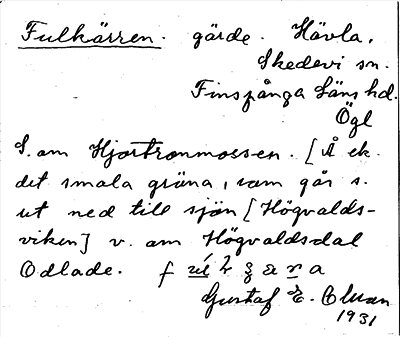 Fulkärren. gärde. Hävla.
Skedevi sn.
Finspånga Läns hd.
Ögl
S. om Hjortronmossen. [Å ek.
det smala gröna, som går s.
ut ned till sjön [Högvalds-
viken] v. om Högvaldsdal
Odlade.
Gustaf E. Olman
1931